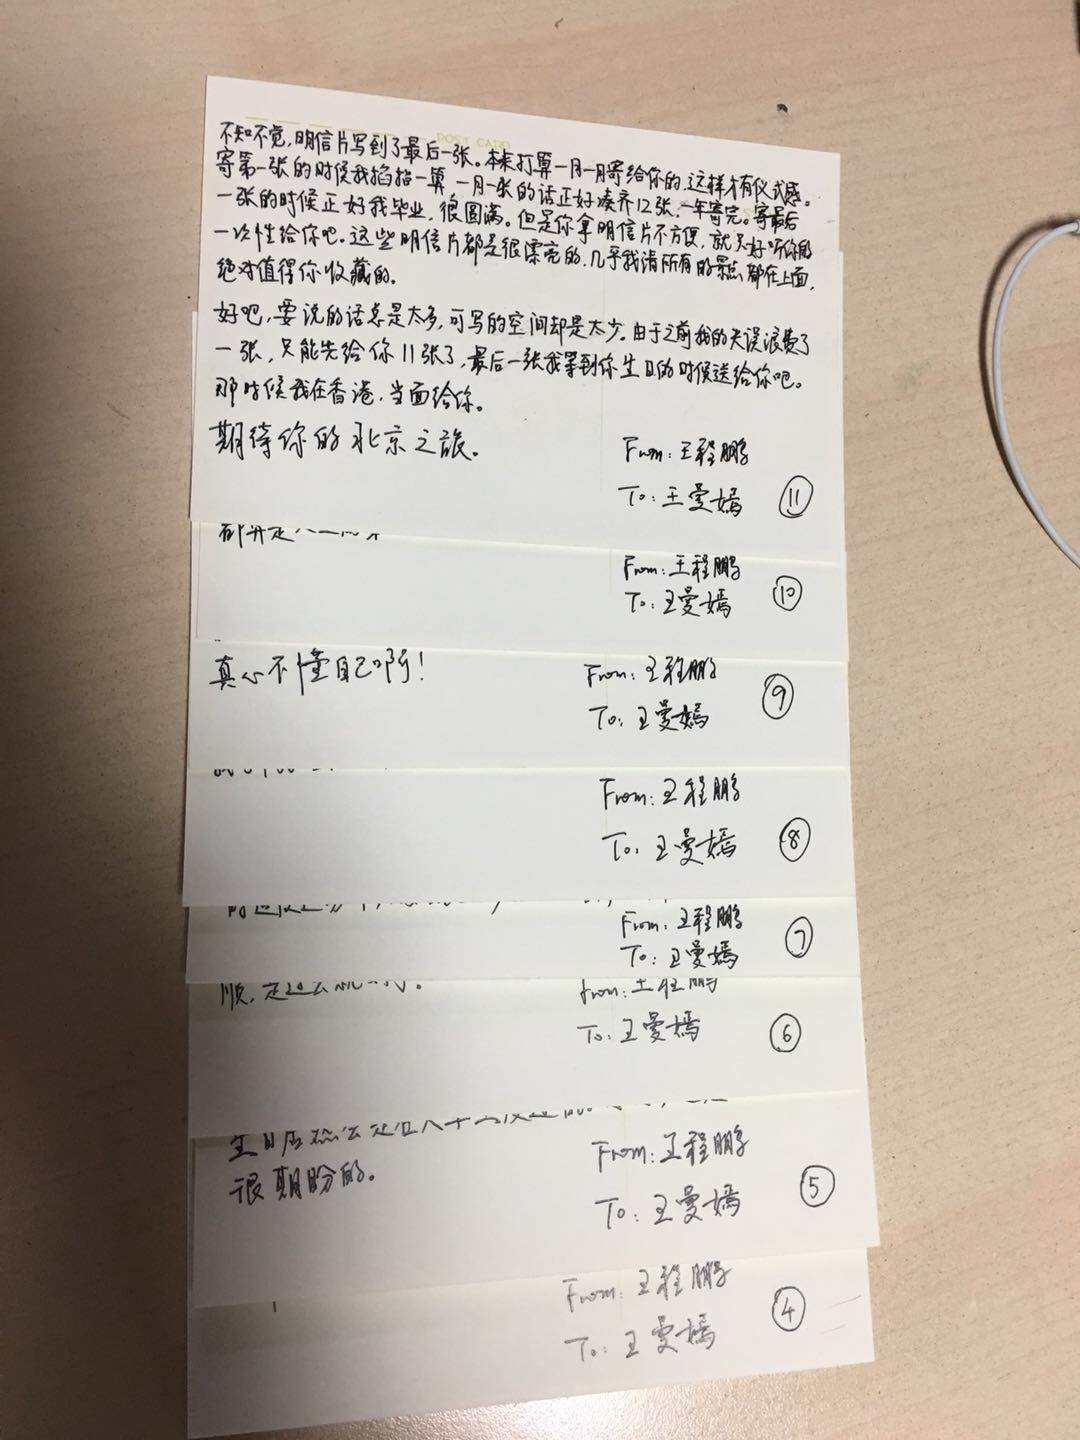 POST CARD
不知不觉，明信片写到了最后一张。本来打算一月一月寄给你的，这样才有仪式感。
寄第一张的时候我掐指一算，一月一张的话正好凑齐12张，一年寄完。寄最后
一张的时候正好我毕业，很圆满。但是你拿明信片不方便，就只好听你的
一次性给你吧。这些明信片都是很漂亮的，几乎我清所有的景点都在上面，
绝对值得你收藏的。
好吧，要说的话总是太多，可写的空间却是太少。由于之前我的失误浪费了
一张，只能先给你11张了，最后一张我等到你生日的时候送给你吧。
那时候我在香港，当面给你。
期待你的北京之旅。
From: 王程鹏
To: 王曼嫣
11
From: 王程鹏
To: 王曼嫣
10
真心不懂自己啊！
From: 王程鹏
To: 王曼嫣
9
From: 王程鹏
To: 王曼嫣
8
From: 王程鹏
To: 王曼嫣
7
From: 王程鹏
To: 王曼嫣
6
很期盼的。
From: 王程鹏
To: 王曼嫣
5
From: 王程鹏
To: 王曼嫣
4